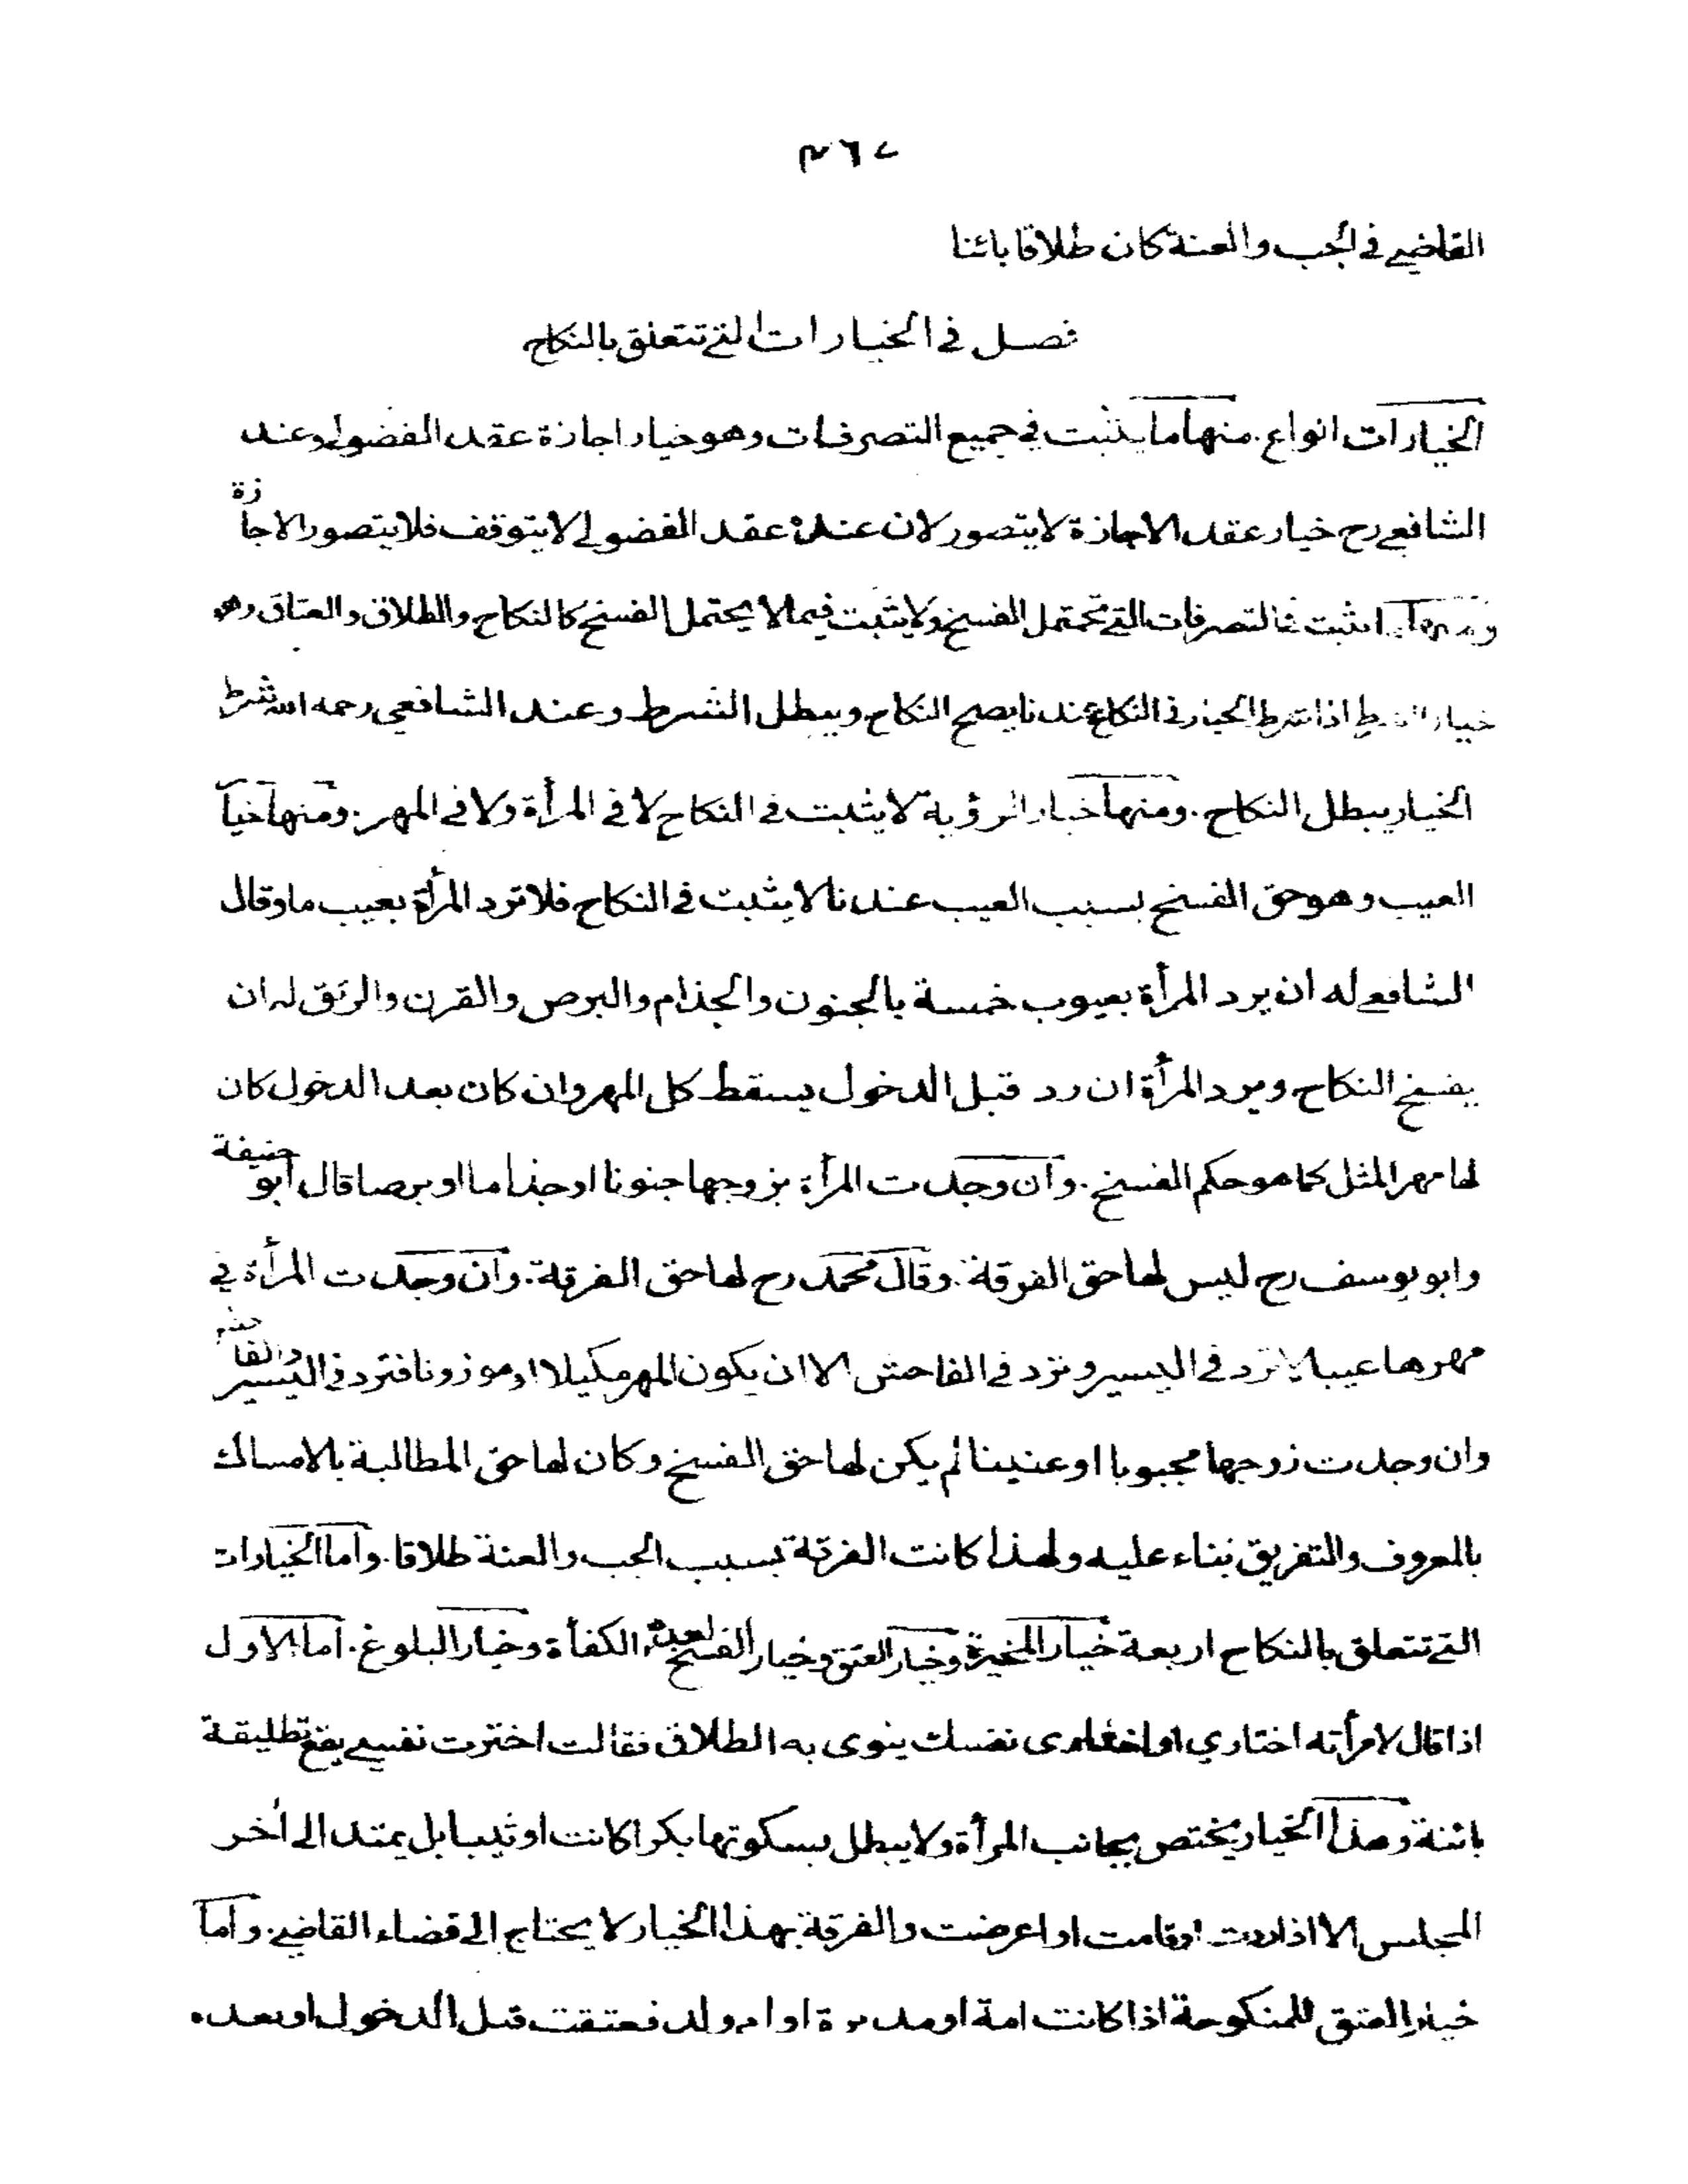 ٤٦٧
القاضي في الجب والعنة كان طلاقا بائنا
فصل في الخيارات التي تتعلق بالنكاح
الخيارات انواع. منها ما يثبت في جميع التصرفات وهو خيار اجازة عقد الفضولي وعند
الشافعي رح خيار عقد الاجازة لا يتصور لان عنده عقد الفضولي لا يتوقف فلا يتصور الاجازة
ومنها ما يثبت في التصرفات التي تحتمل الفسخ ولا يثبت فيما لا يحتمل الفسخ كالنكاح والطلاق والعتاق وهو
خيار الشرط اذا شرط الخيار في النكاح عندنا يصح النكاح ويبطل الشرط وعند الشافعي رحمه الله شرط
الخيار يبطل النكاح. ومنها خيار الرؤية لا يثبت في النكاح لا في المرأة ولا في المهر. ومنها خيا
العيب وهو حق الفسخ بسبب العيب عندنا لا يثبت في النكاح فلا ترد المرأة بعيب ما وقال
الشافعي له ان يرد المرأة بعيوب خمسة بالجنون والجذام والبرص والقرن والرتق له ان
يفسخ النكاح ويرد المرأة ان رد قبل الدخول يسقط كل المهر وان كان بعد الدخول كان
لها مهر المثل كما هو حكم الفسخ. وان وجدت المرأة بزوجها جنونا او جذاما او برصا قال أبو حنيفة
وابو يوسف رح ليس لها حق الفرقة. وقال محمد رح لها حق الفرقة. وان وجدت المرأة في
مهرها عيبا لا ترد في اليسير وترد في الفاحش الا ان يكون المهر مكيلا او موزونا فترد في اليسير والفاحش
وان وجدت زوجها مجبوبا او عنينا لم يكن لها حق الفسخ وكان لها حق المطالبة بالامساك
بالمعروف والتفريق بناء عليه ولهذا كانت الفرقة بسبب الجب والعنة طلاقا. واما الخيارات
التي تتعلق بالنكاح اربعة خيار المخيرة وخيار العتق وخيار الفسخ لعدم الكفأة وخيار البلوغ. اما الاول
اذا قال لامرأته اختاري او اختاري نفسك ينوى به الطلاق فقالت اخترت نفسي يقع تطليقة
بائنة وهذا الخيار يختص بجانب المرأة ولا يبطل بسكوتها بكرا كانت او ثيبا بل يمتد الى أخر
المجلس الا اذا ردت او قامت او اعرضت والفرقة بهذا الخيار لا يحتاج الى قضاء القاضي. واما
خيار العتق للمنكوحة اذا كانت امة او مدبرة او ام ولد فعتقت قبل الدخول او بعده